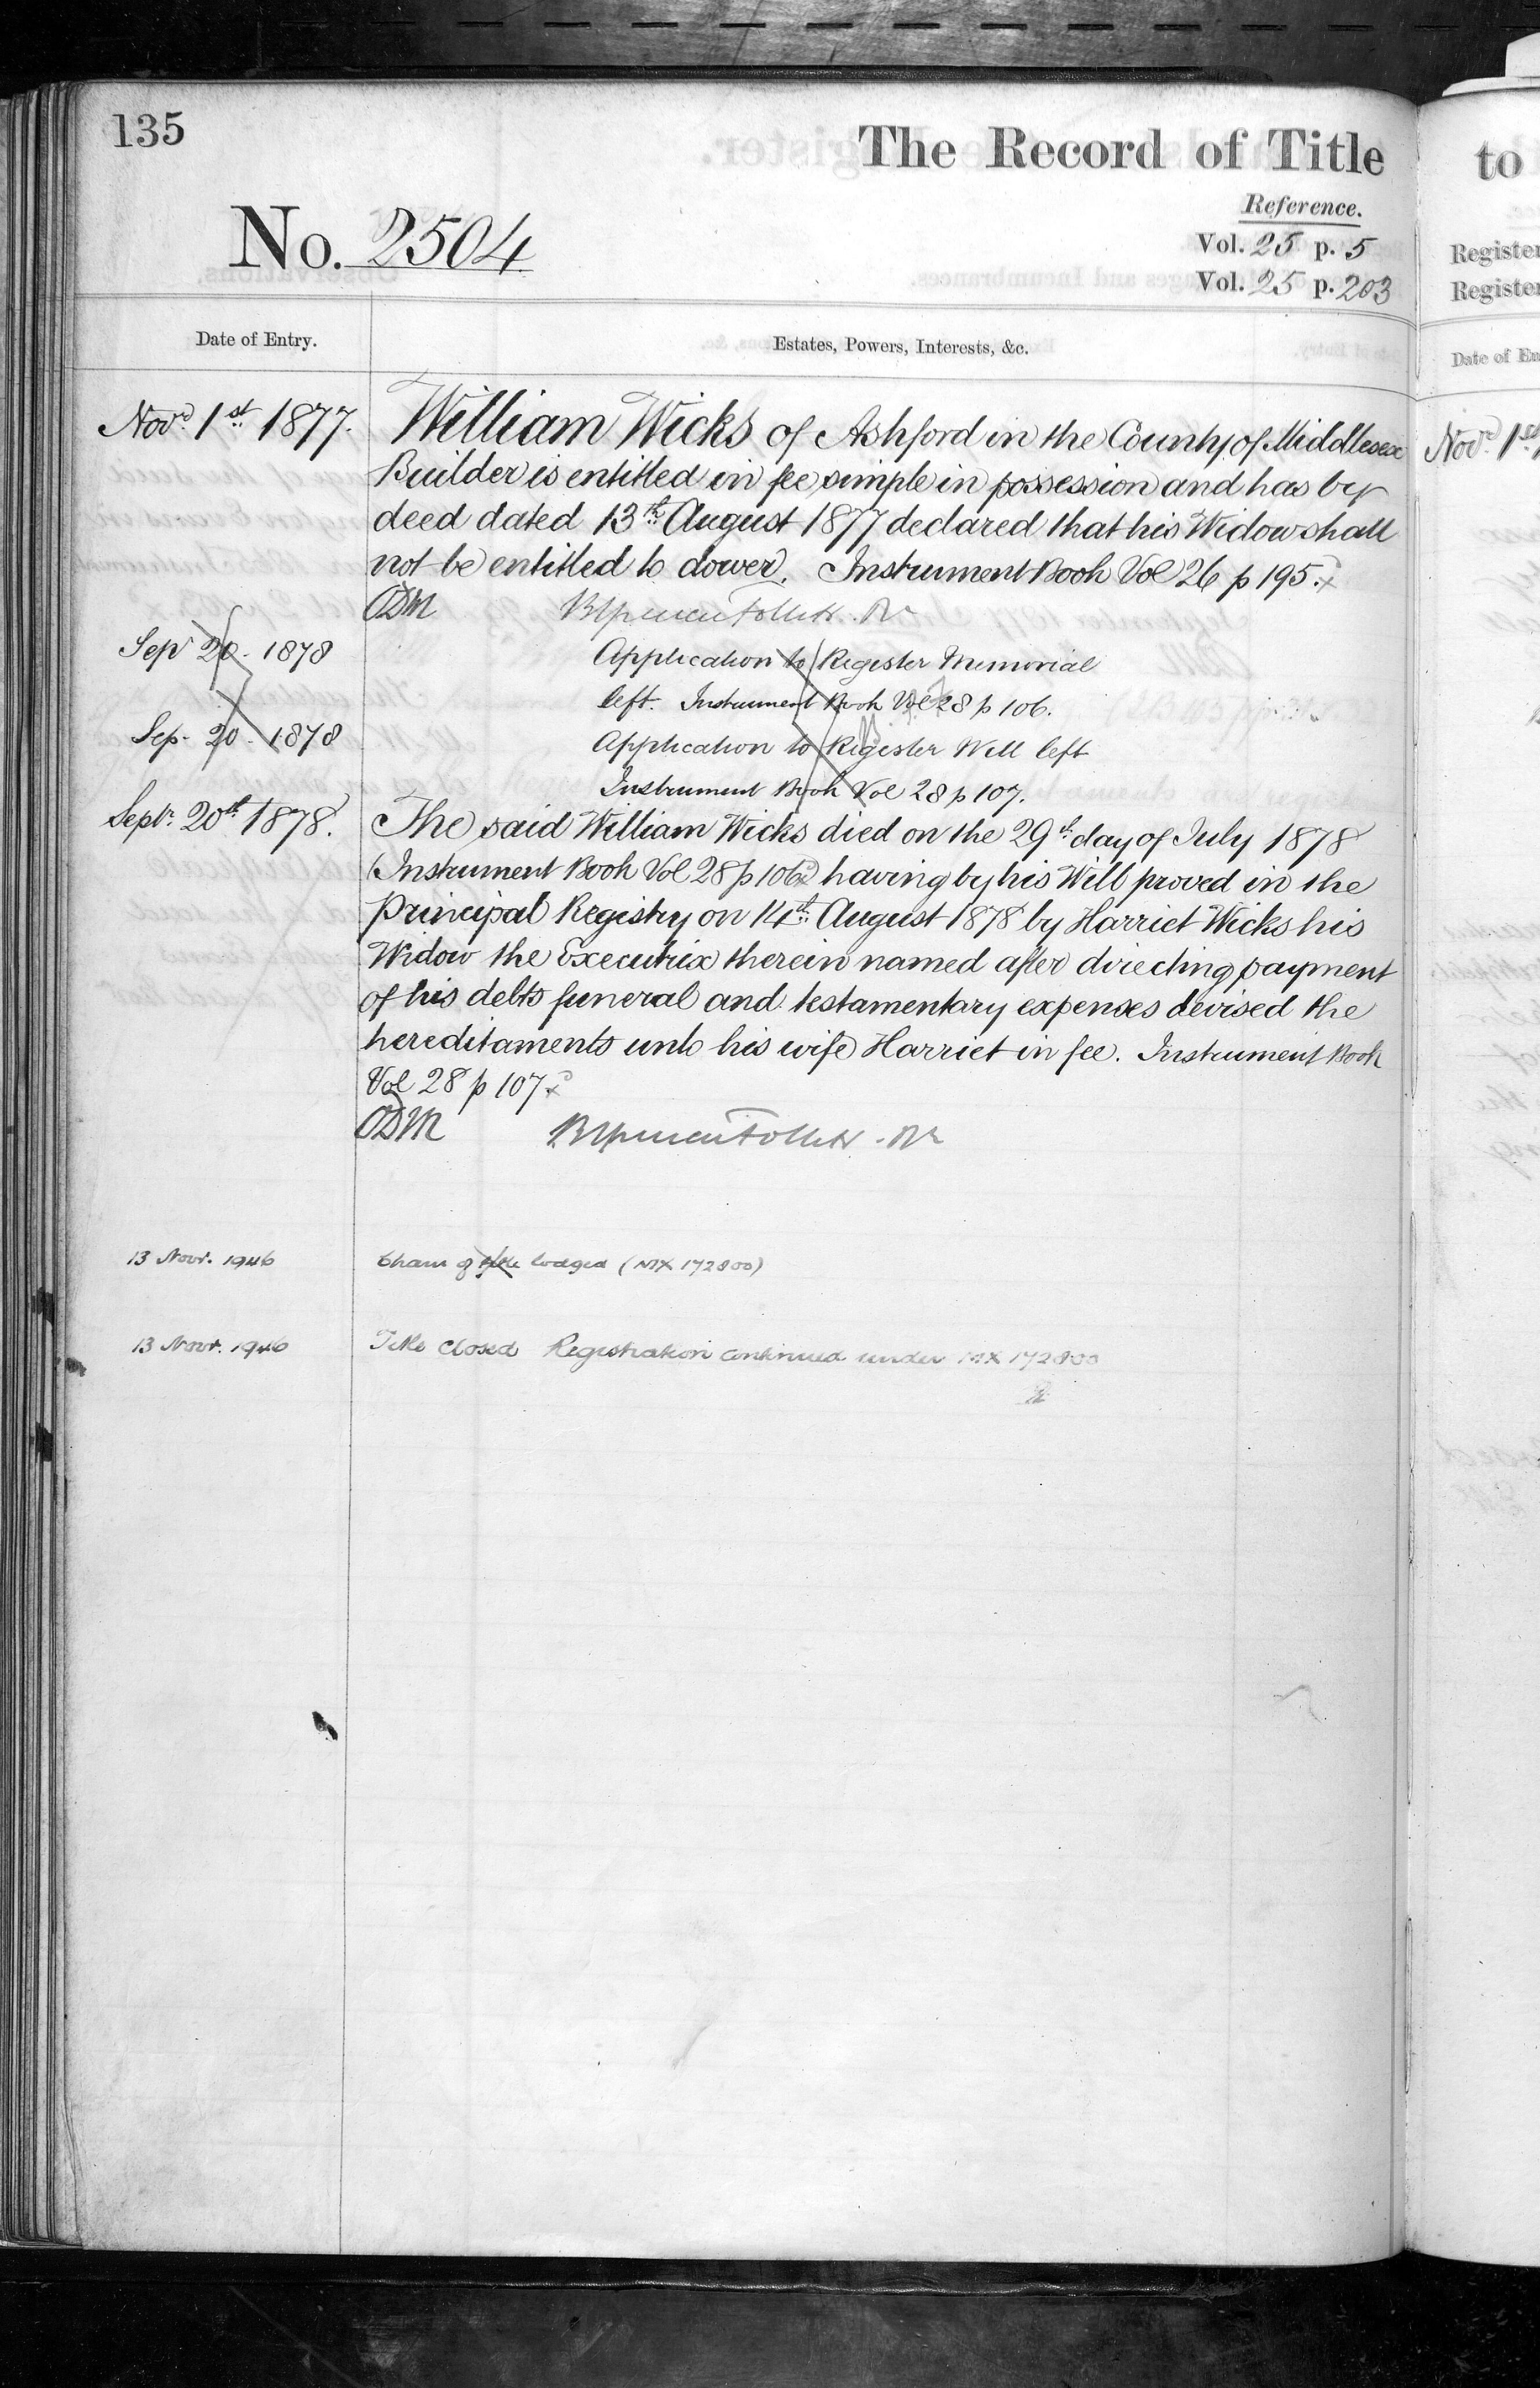 135
The Record of Title
to
Reference.
No. 2504
Vol. 25 p. 5
Vol. 25 p. 203
Register
Register
Date of Entry.
Estates, Powers, Interests, &c.
Date of En
Novr. 1st. 1877.
William Wicks of Ashford in the County of Middlesex
Novr. 1st
Builder is entitled in fee simple in possession and has by
deed dated 13th. August 1877 declared that his Widow shall
not be entitled to dower. Instrument Book Vol 26 p 195.
ODM
Sepr 20. 1878
Application to Register Memorial
left. Instrument Book Vol 28 p 106.
Sep. 20. 1878
Application to Register Will left
Instrument Book Vol 28 p 107.
Septr. 20th. 1878.
The said William Wicks died on the 29th. day of July 1878
(Instrument Book Vol 28 p 106) having by his Will proved in the
Principal Registry on 14th. August 1878 by Harriet Wicks his
Widow the Executrix therein named after directing payment
of his debts funeral and testamentary expenses devised the
hereditaments unto his wife Harriet in fee. Instrument Book
Vol 28 p 107.
ODM
13 Novr. 1946
lodged (MX 172800)
13 Novr. 1946
Title closed Registration continued under MX 172800